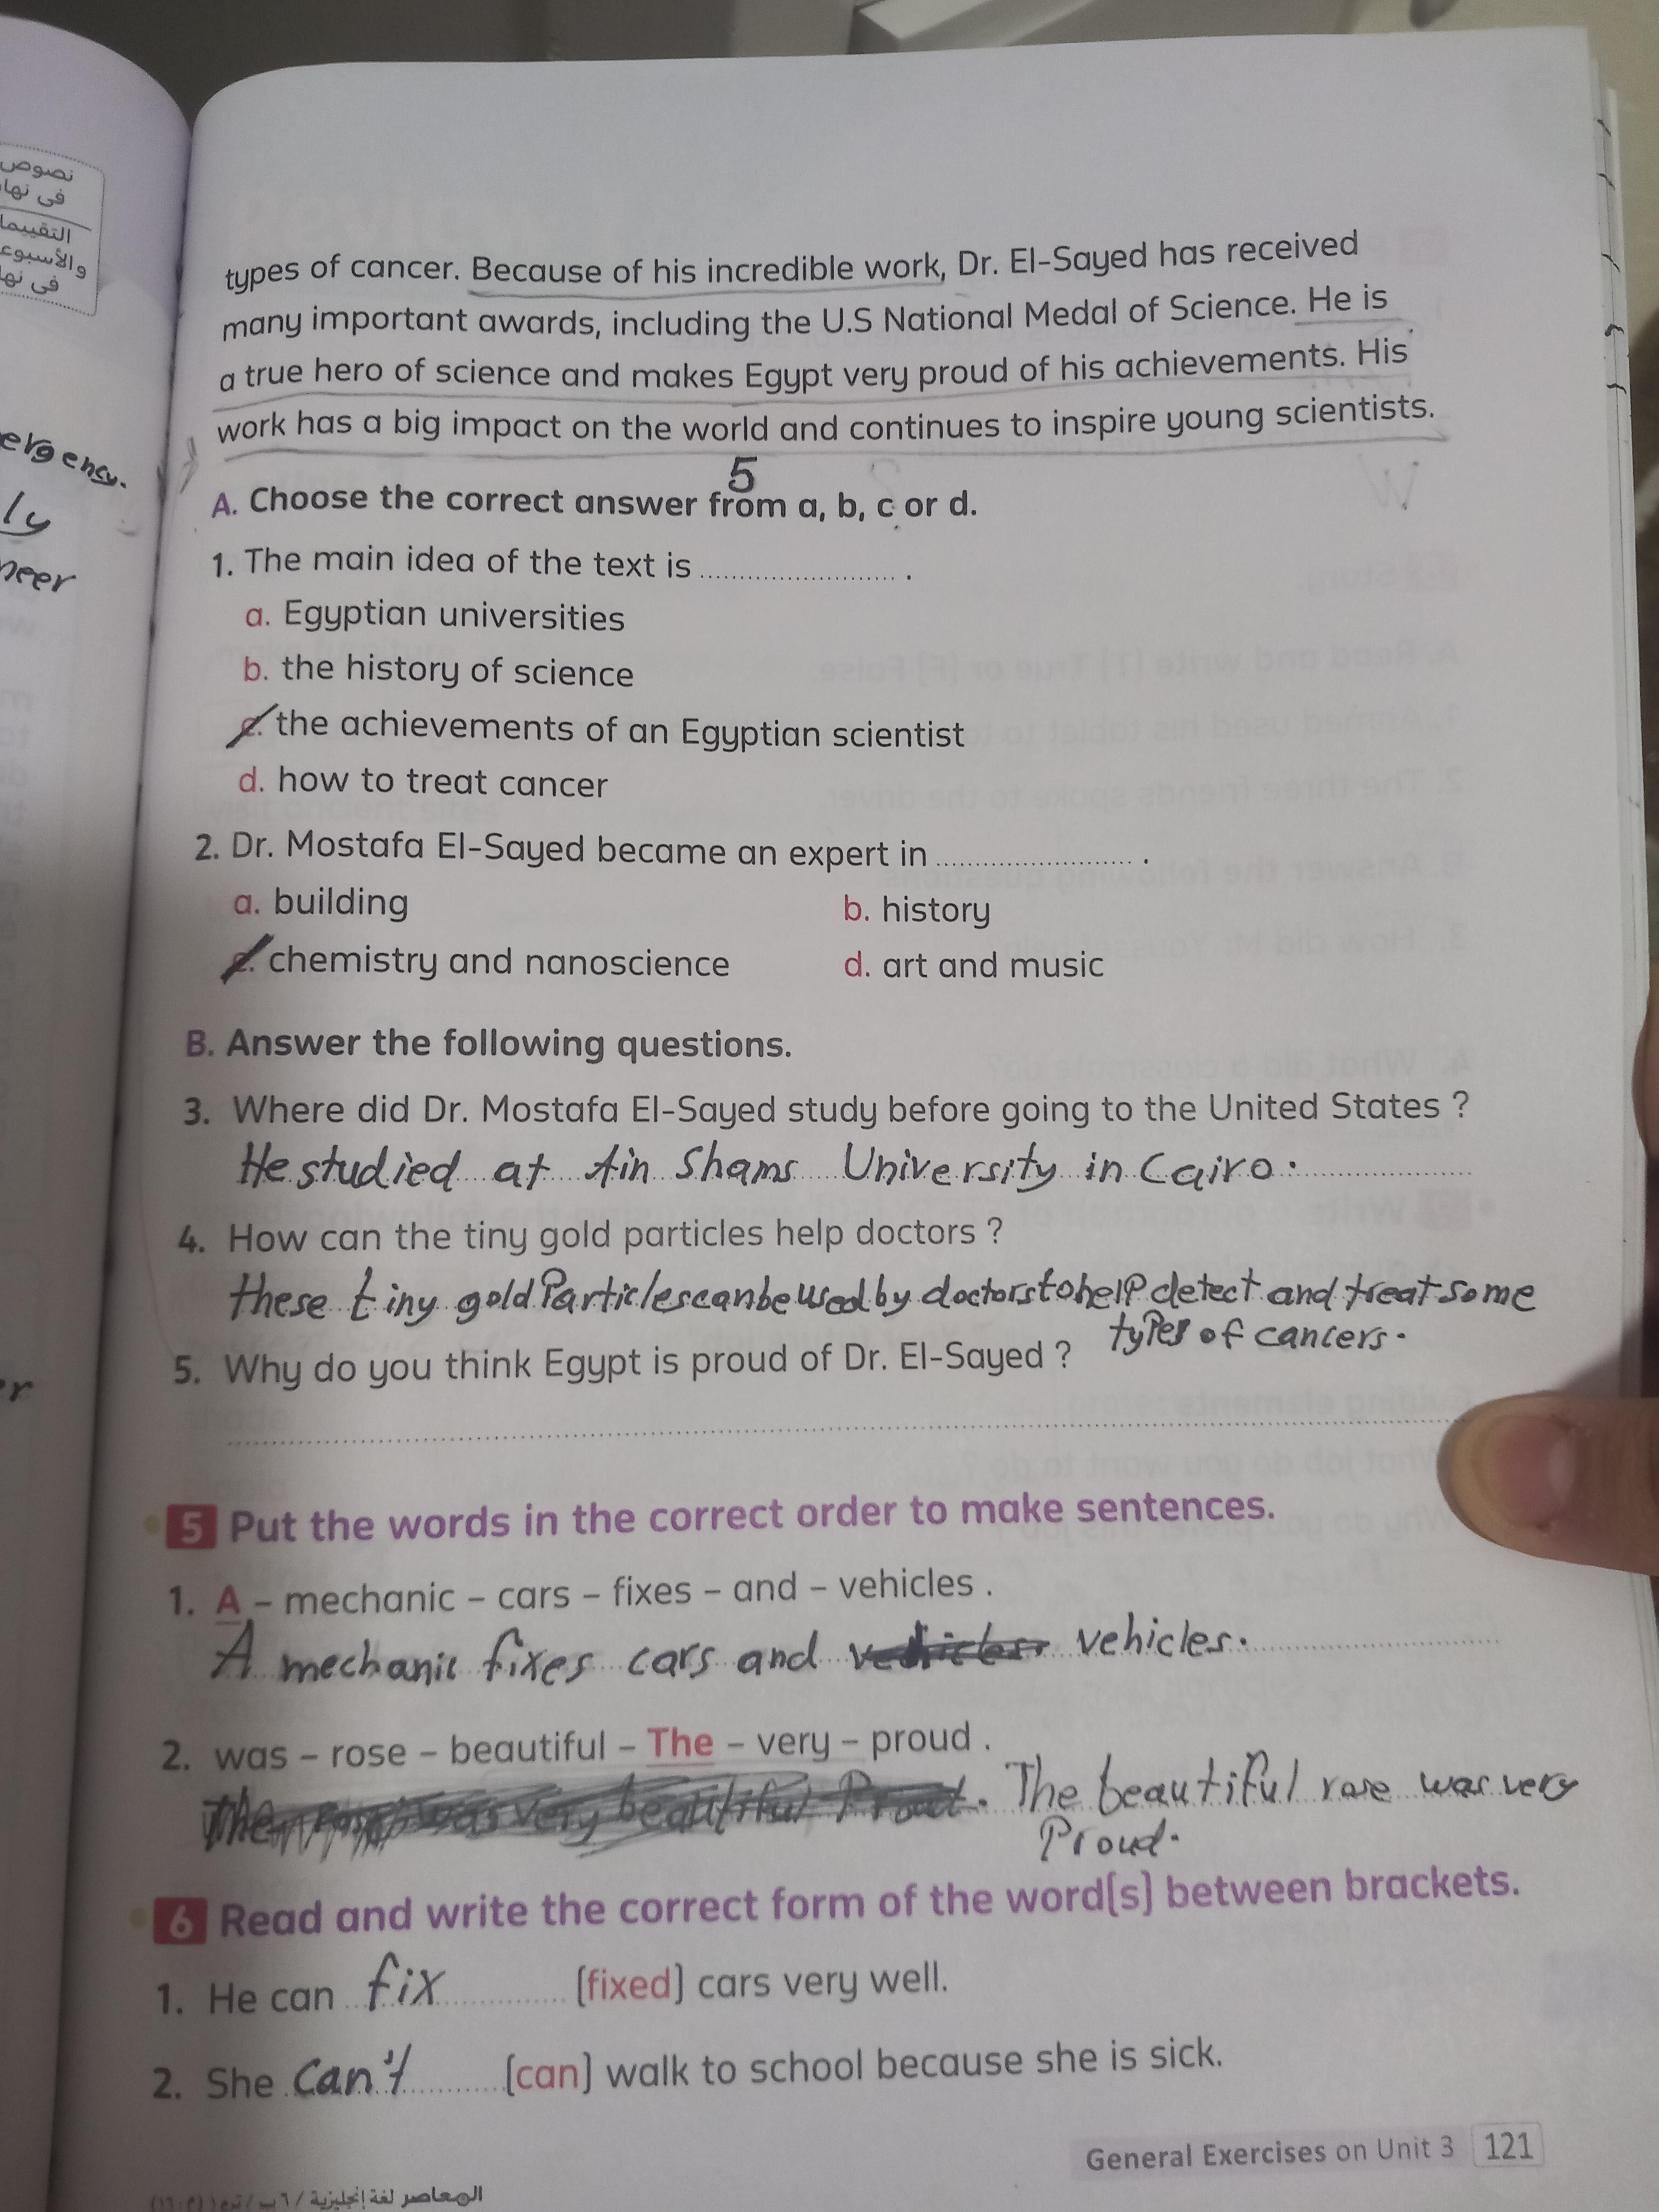 نصوص
فى نها
التقييما
والأسبوع
فى نها
ergency.
ly
neer
types of cancer. Because of his incredible work, Dr. El-Sayed has received
many important awards, including the U.S National Medal of Science. He is
a true hero of science and makes Egypt very proud of his achievements. His
work has a big impact on the world and continues to inspire young scientists.
5
A. Choose the correct answer from a, b, c or d.
1. The main idea of the text is .
a. Egyptian universities
b. the history of science
c. the achievements of an Egyptian scientist
d. how to treat cancer
2. Dr. Mostafa El-Sayed became an expert in .
a. building b. history
c. chemistry and nanoscience d. art and music
B. Answer the following questions.
3. Where did Dr. Mostafa El-Sayed study before going to the United States ?
He studied at Ain Shams University in Cairo.
4. How can the tiny gold particles help doctors ?
these tiny gold Particles can be used by doctors to help detect and treat some
types of cancers.
5. Why do you think Egypt is proud of Dr. El-Sayed ?
5 Put the words in the correct order to make sentences.
1. A – mechanic – cars – fixes – and – vehicles .
A mechanic fixes cars and vehicles.
2. was – rose – beautiful – The – very – proud .
The rose was very beautiful Proud. The beautiful rose was very
Proud.
6 Read and write the correct form of the word(s) between brackets.
1. He can fix (fixed) cars very well.
2. She can't (can) walk to school because she is sick.
General Exercises on Unit 3 121
المعاصر لغة إنجليزية / ٦ ب /